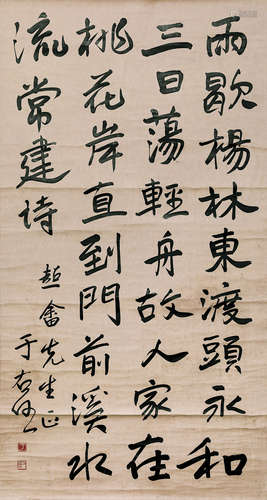 雨歇楊林東渡頭永和
三日蕩輕舟故人家在
桃花岸直到門前溪水
流常建詩
趙畬先生正
于右任